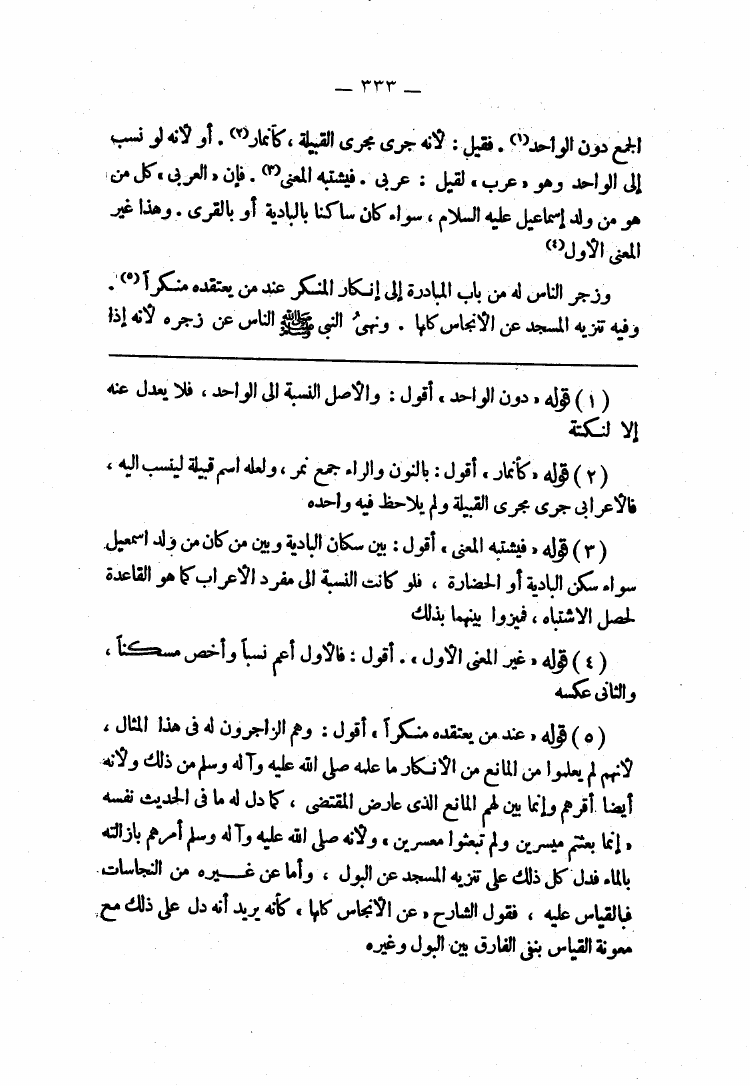 — ٣٣٣ —
الجمع دون الواحد(١) . فقيل : لأنه جرى مجرى القبيلة ، كأنمار(٢) . أو لأنه لو نسب
إلى الواحد وهو « عرب » لقيل : عربى . فيشتبه المعنى(٣) . فإن « العربى » كل من
هو من ولد إسماعيل عليه السلام ، سواء كان ساكنا بالبادية أو بالقرى . وهذا غير
المعنى الأول(٤)
وزجر الناس له من باب المبادرة إلى إنكار المنكر عند من يعتقده منكراً(٥) .
وفيه تنزيه المسجد عن الأنجاس كلها . ونهىُ النبي ﷺ الناس عن زجره لأنه إذا
( ١ ) قوله « دون الواحد » أقول : والأصل النسبة الى الواحد ، فلا يعدل عنه
إلا لنكتة
( ٢ ) قوله « كأنمار » أقول : بالنون والراء جمع نمر ، ولعله اسم قبيلة لينسب اليه ،
فالأعرابى جرى مجرى القبيلة ولم يلاحظ فيه واحده
( ٣ ) قوله « فيشتبه المعنى » أقول : بين سكان البادية وبين من كان من ولد اسمعيل
سواء سكن البادية أو الحضارة ، فلو كانت النسبة الى مفرد الأعراب كما هو القاعدة
لحصل الاشتباه ، فميزوا بينهما بذلك
( ٤ ) قوله « غير المعنى الأول » . أقول : فالأول أعم نسباً وأخص مسكناً ،
والثانى عكسه
( ٥ ) قوله « عند من يعتقده منكراً » أقول : وهم الزاجرون له فى هذا المثال ،
لأنهم لم يعلموا من المانع من الانكار ما علمه صلى الله عليه وآله وسلم من ذلك ولأنه
أيضا أقرهم وإنما بين لهم المانع الذى عارض المقتضى ، كما دل له ما فى الحديث نفسه
« إنما بعثتم ميسرين ولم تبعثوا معسرين » ولأنه صلى الله عليه وآله وسلم أمرهم بازالته
بالماء فدل كل ذلك على تنزيه المسجد عن البول ، وأما عن غيره من النجاسات
فبالقياس عليه ، فقول الشارح « عن الأنجاس كلها » كأنه يريد أنه دل على ذلك مع
معونة القياس بنفى الفارق بين البول وغيره